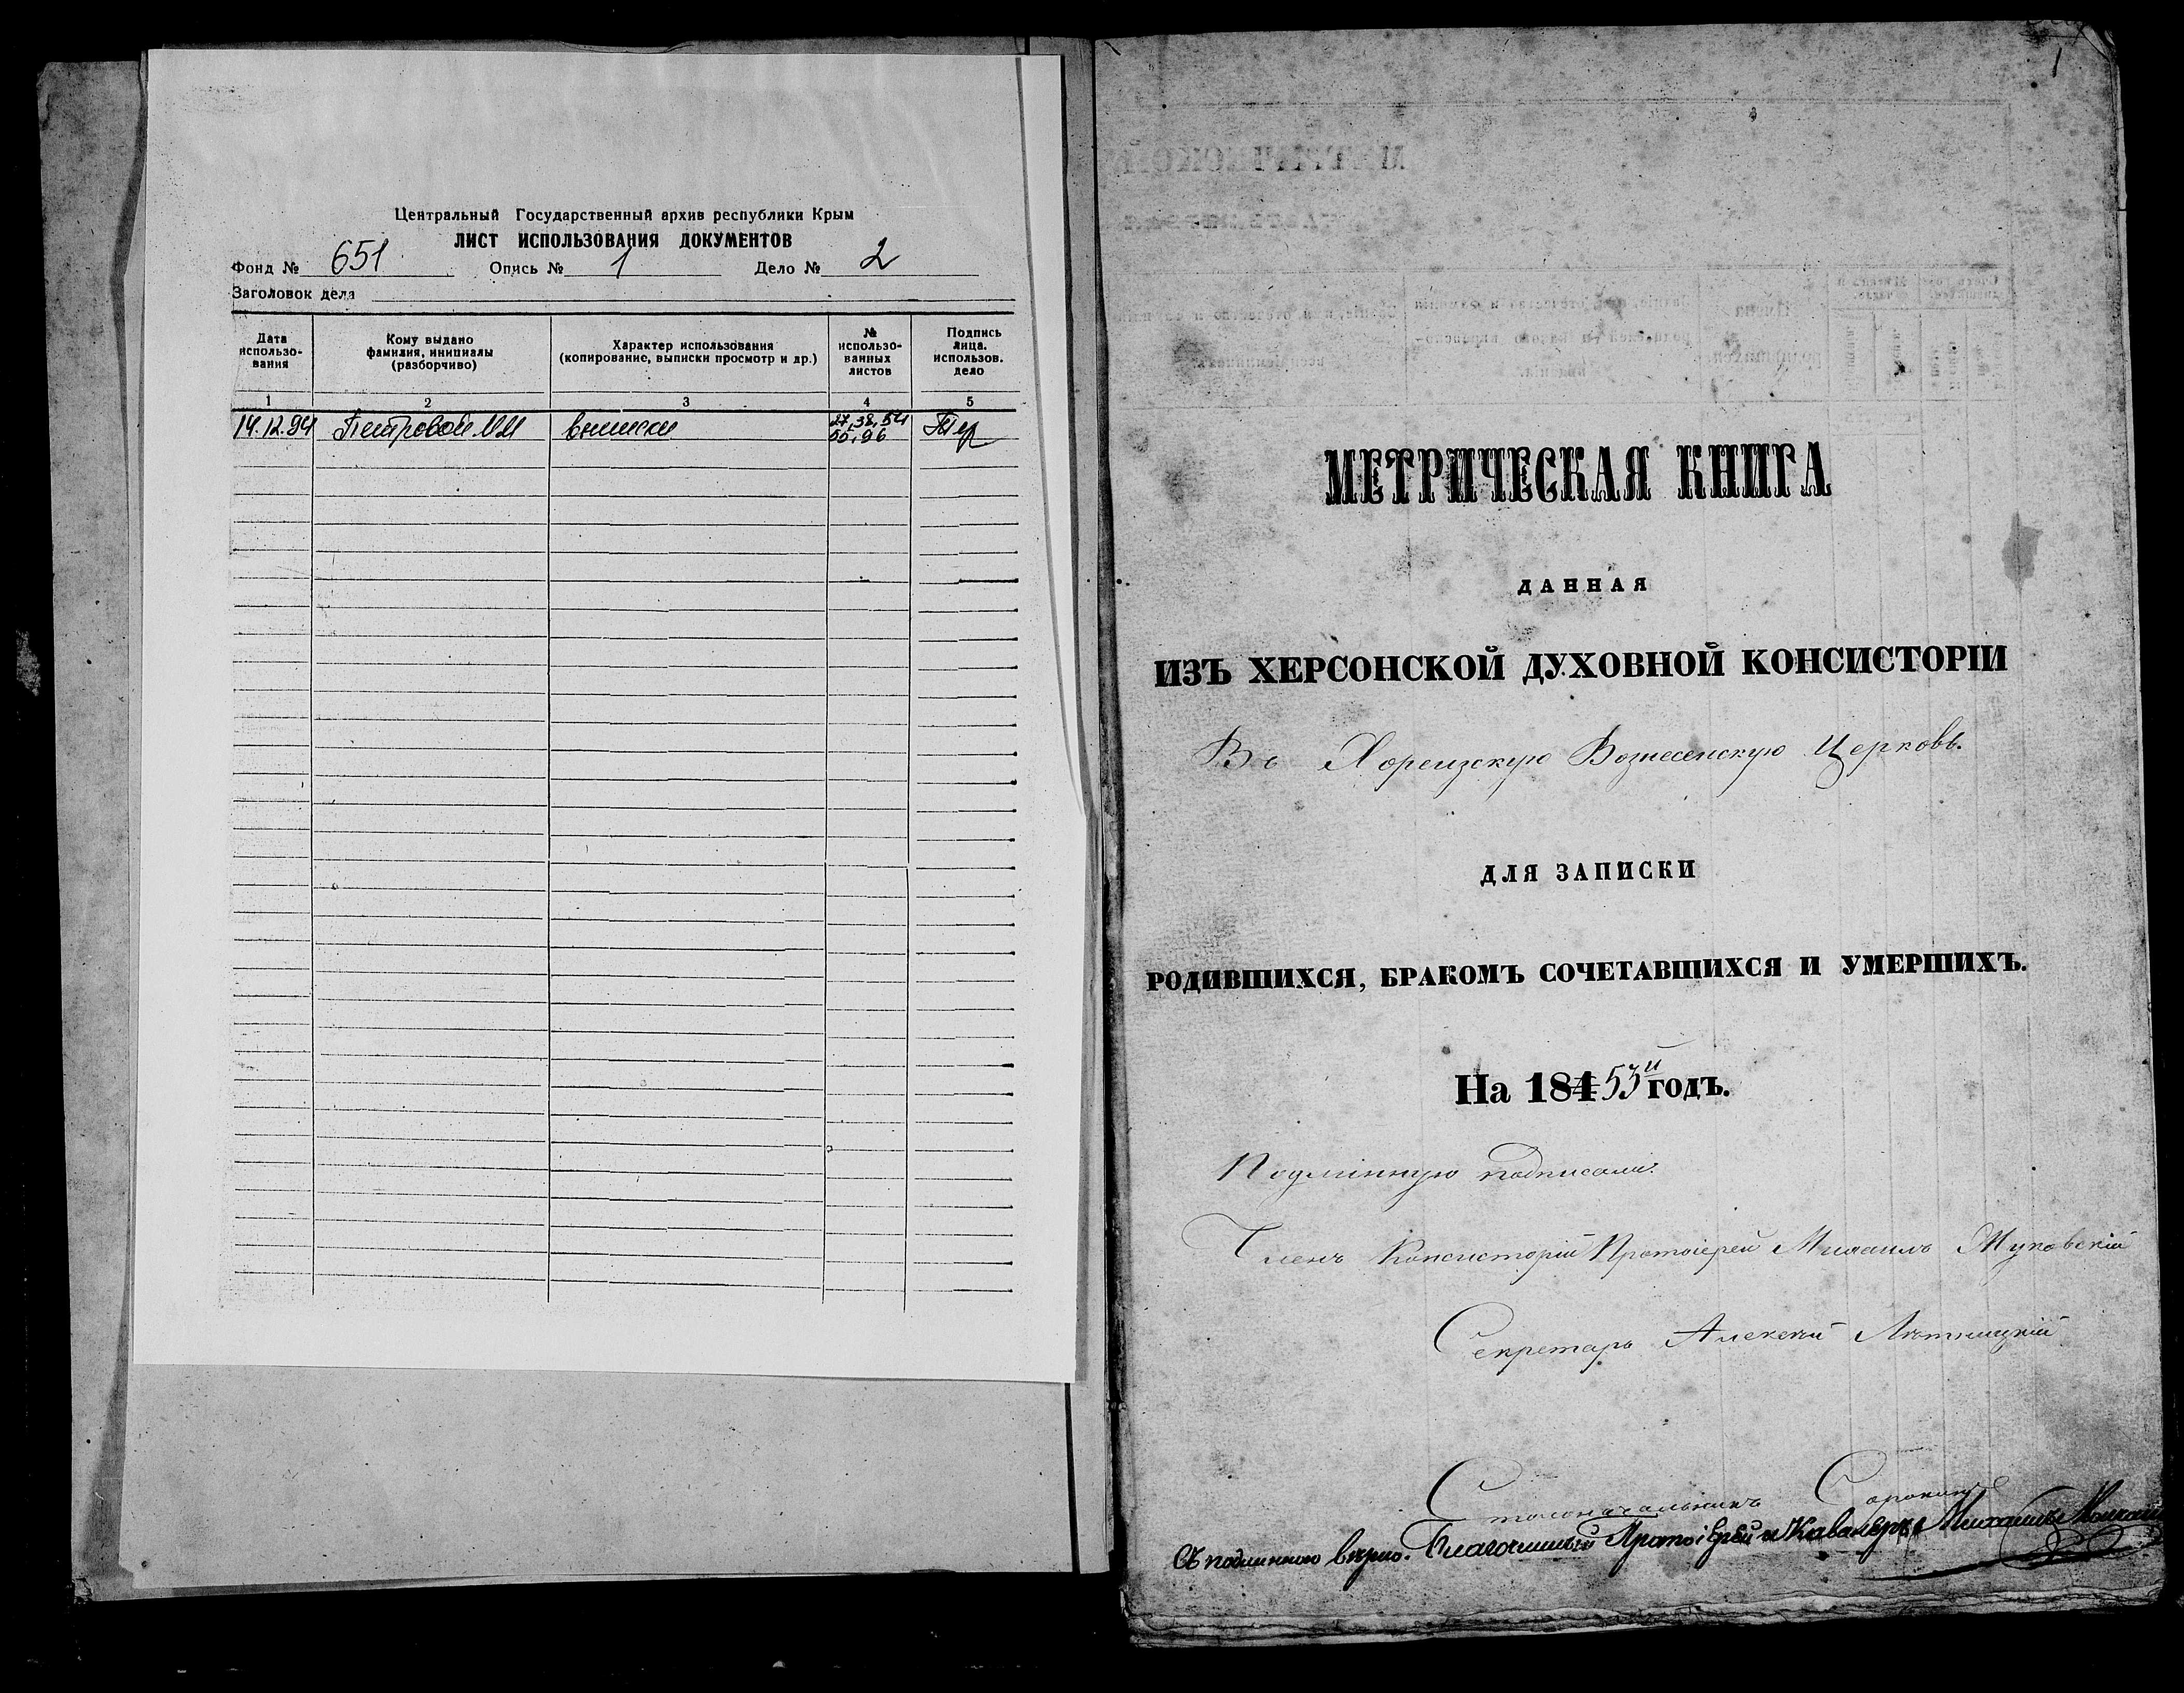 Центральный Государственный архив республики Крым
ЛИСТ ИСПОЛЬЗОВАНИЯ ДОКУМЕНТОВ
Фонд № 651 Опись № 1 Дело № 2
Заголовок дела
Дата использо-вания
Кому выдано фамилия, инициалы (разборчиво)
Характер использования (копирование, выписки просмотр и др.)
№ использо-ванных листов
Подпись лица. использов. дело
1 2 3 4 5
14.12.94 Петровой выписки 27, 38, 54
55, 96
1
МЕТРИЧЕСКАЯ КНИГА
ДАННАЯ
ИЗЪ ХЕРСОНСКОЙ ДУХОВНОЙ КОНСИСТОРІИ
Въ Хореизскую Вознесенскую Церковь.
ДЛЯ ЗАПИСКИ
РОДИВШИХСЯ, БРАКОМЪ СОЧЕТАВШИХСЯ И УМЕРШИХЪ.
На 184 53й годъ.
Подлинную подписали:
Членъ Консисторіи Протоіерей Михаилъ
Секретарь Алексей
Столоначальникъ Сорокинъ
Съ подлинною верно. Благочинный Протоіерей и Кавалеръ Михаилъ